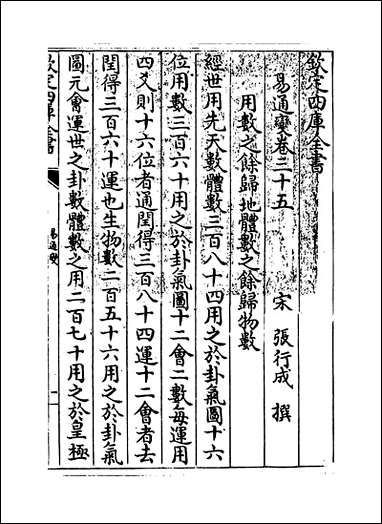 欽定四庫全書
易通變卷三十五
宋 張行成 撰
用數之餘歸地體數之餘歸物數
經世用先天數體數三百八十四用之於卦氣圖十六
位用數三百六十用之於卦氣圖十二會二數每運用
四爻則十六位者通閏得三百八十四運十二會者去
閏得三百六十運也生物數二百五十六用之於卦氣
圖元會運世之卦數體數之用二百七十用之於皇極
欽定四庫全書
易通變
一